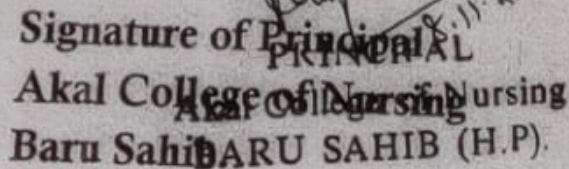 Signature of Principal
PRINCIPAL
Akal College of Nursing
Akal College of Nursing
Baru Sahib
BARU SAHIB (H.P).